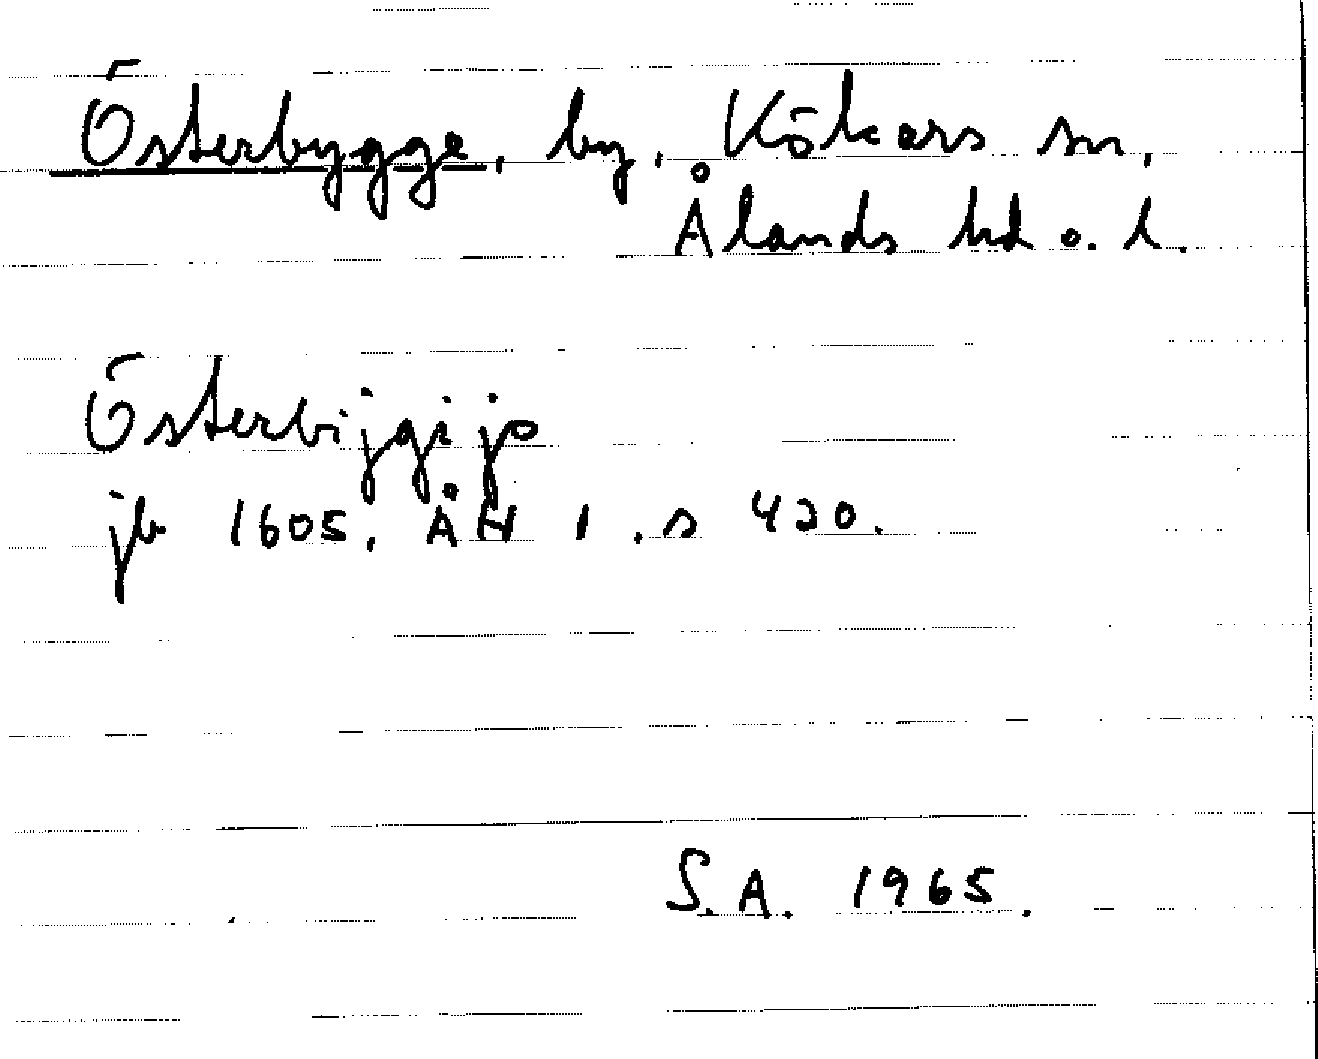 Österbygge, by, Kökars sn,
Ålands hd o. l.
Österbijgi jo
jb 1605. ÅH 1. s 420.
S.A. 1965.